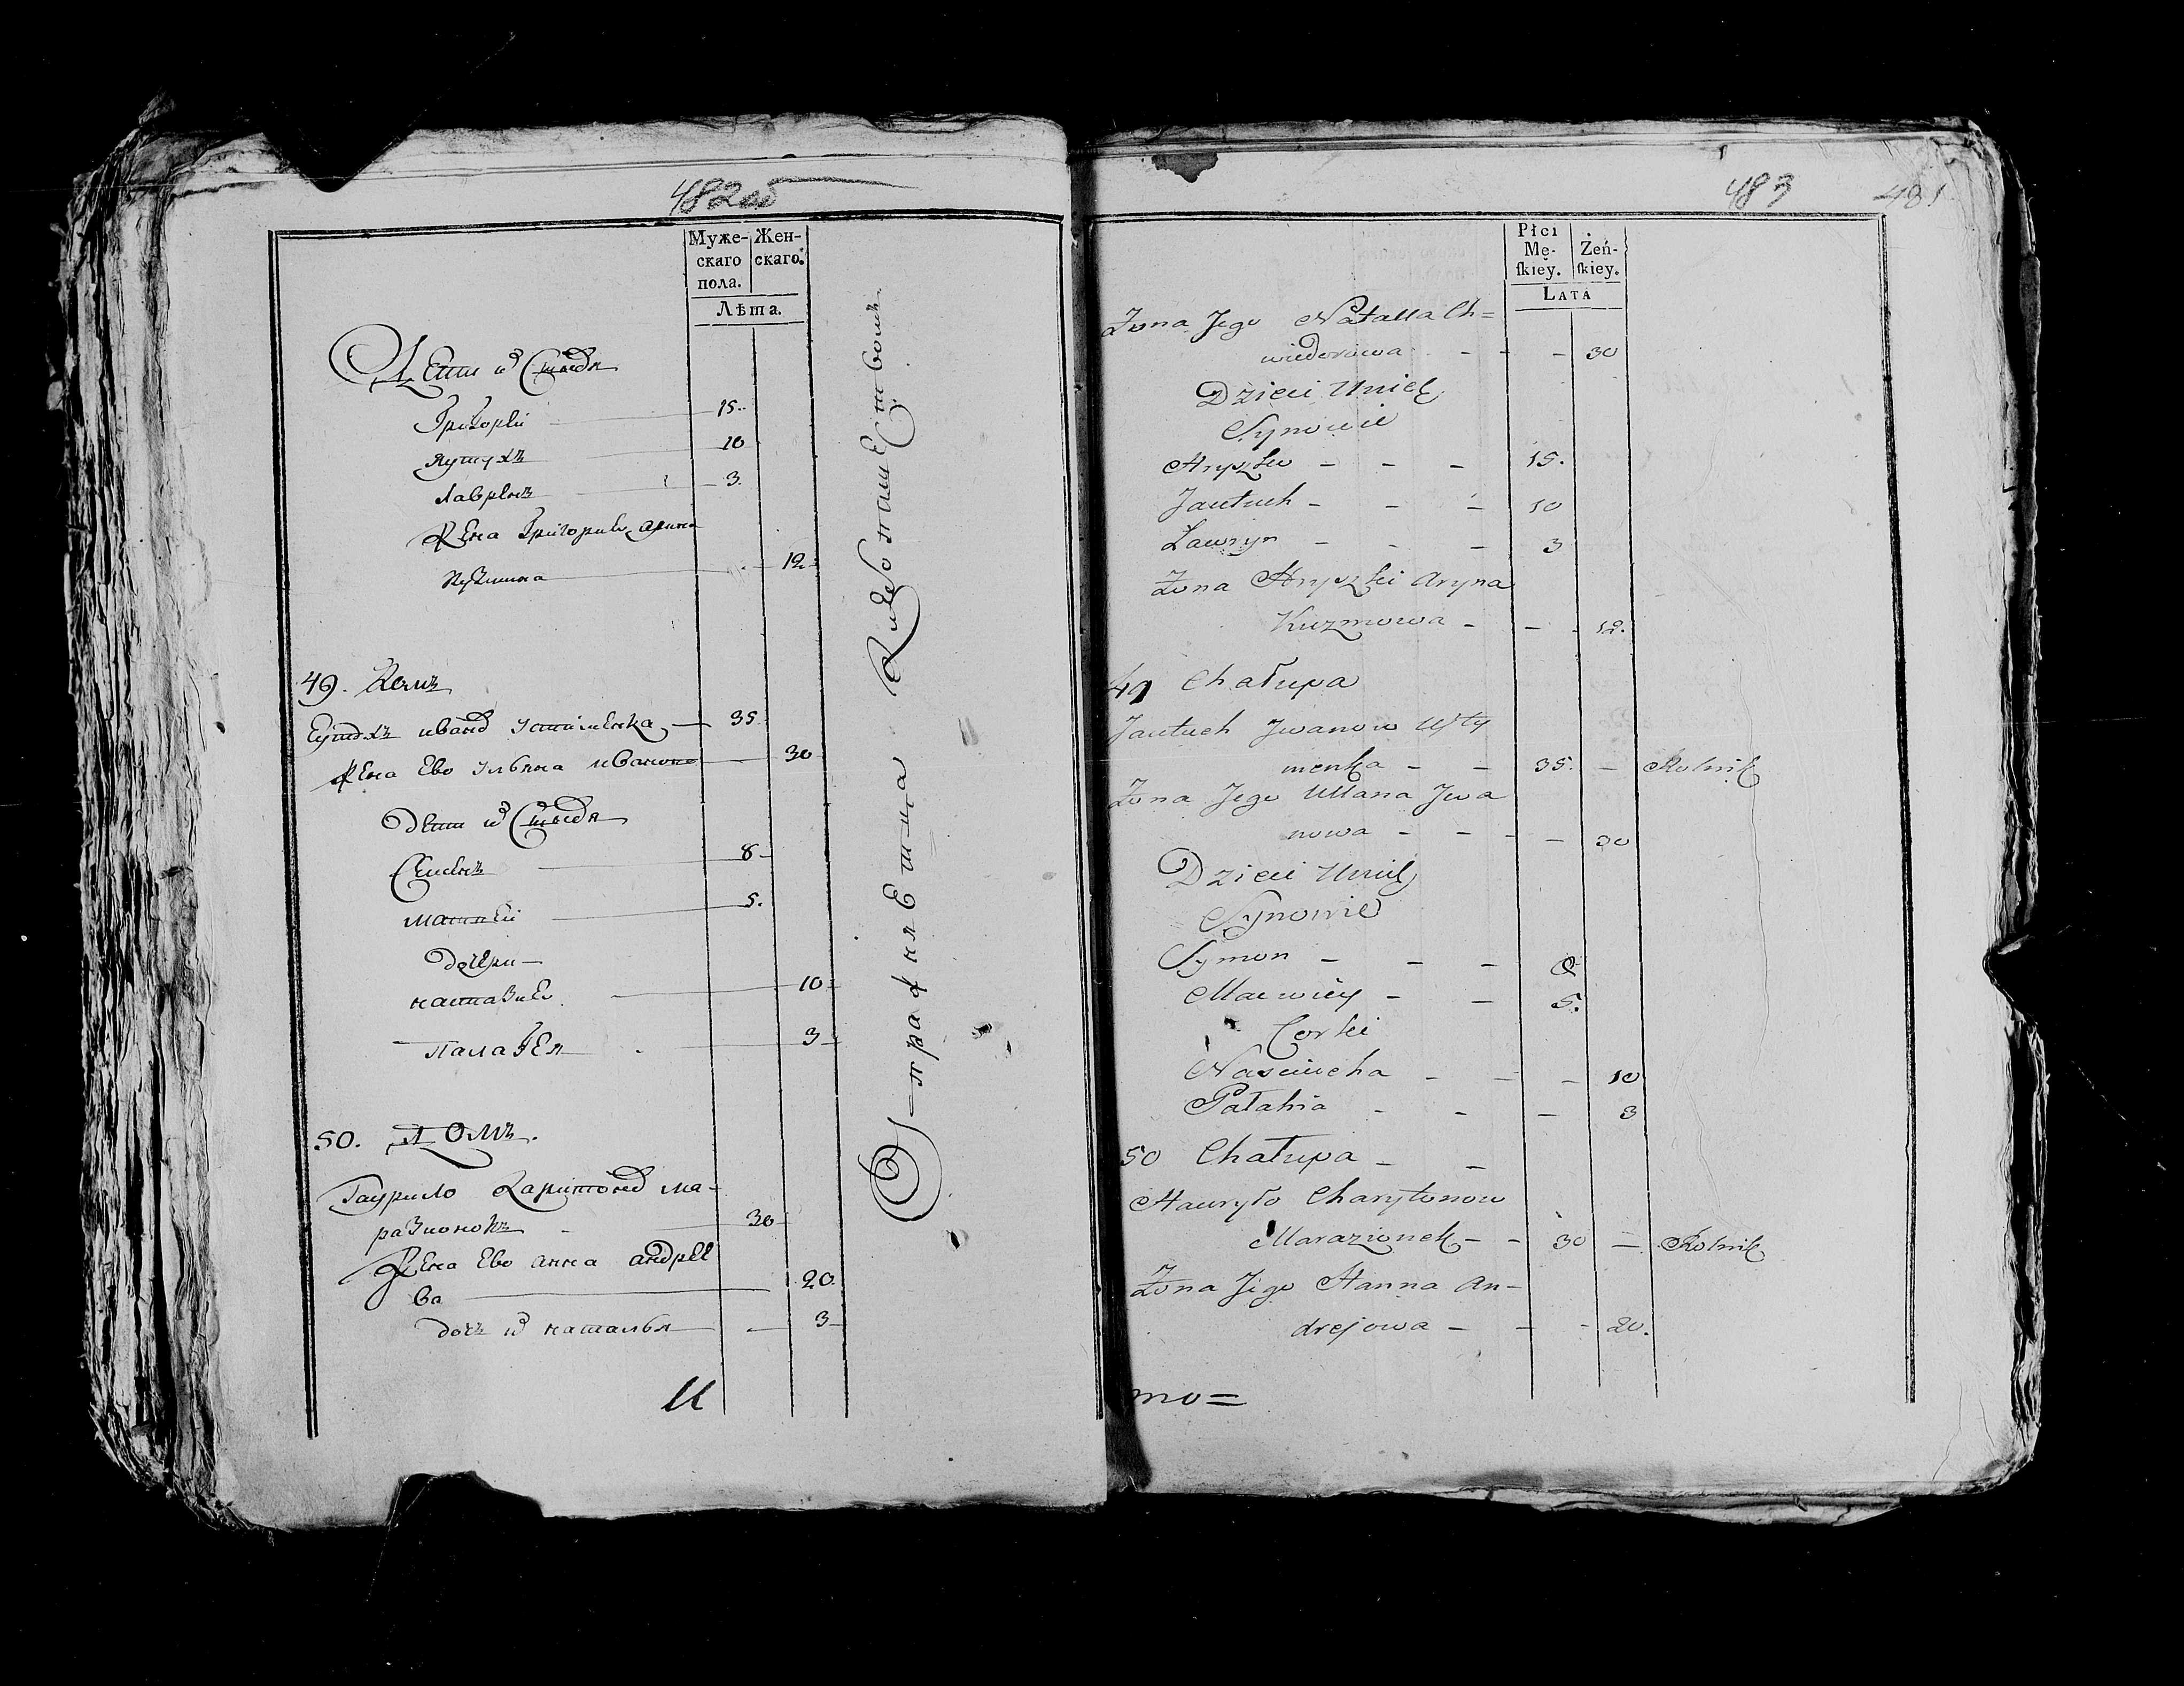 482 об
Муже-
скаго
пола.
Жен-
скаго.
Лѣта.
Дети и Стыдя
Григорей 15
Яутухъ 10
Лаврѣнъ 3.
Жена Григория Арина
Кузмина 12
49. Домъ
Еутухъ Иванов Устименка 35
Жена Ево Ульяна Иванова 30
Дети
Семенъ 8
Матвей 5.
Дочери
10
Палагея 3
50. Домъ.
Гаурило Харитонов Ма-
разионокъ 30
Жена Ево Анна Андрее
ва 20
дочь Наталья 3
И
Упражняетца Хлебопашеством
483
481
Płci
Mę-
ſkiey.
Żeń-
ſkiey.
LATA
Żona Jego Natalla Ch=
wiedorowa - - - 30
Dzieci Unich
Synowie
Hryszko - - - 15.
Jautuch - - - 10
Ławryn - - - 3
Żona Hryszki Aryna
Kuzmowa - - - 12.
49 Chałupa
Jautuch Jwanow Usty
menka - - 35. - Rolnik
Żona Jego Ullana Jwa
nowa - - - - 30
Dzieci Unich
Synowie
Symon - - - 8
Macwiey - - 5.
Corki
Nasciucha - - - 10
Pałahia - - - 3
50 Chałupa - -
Hauryło Charytonow
Marazionek - - 30 - Rolnik
Żona Jego Hanna An-
drejowa - - - 20.
mo=